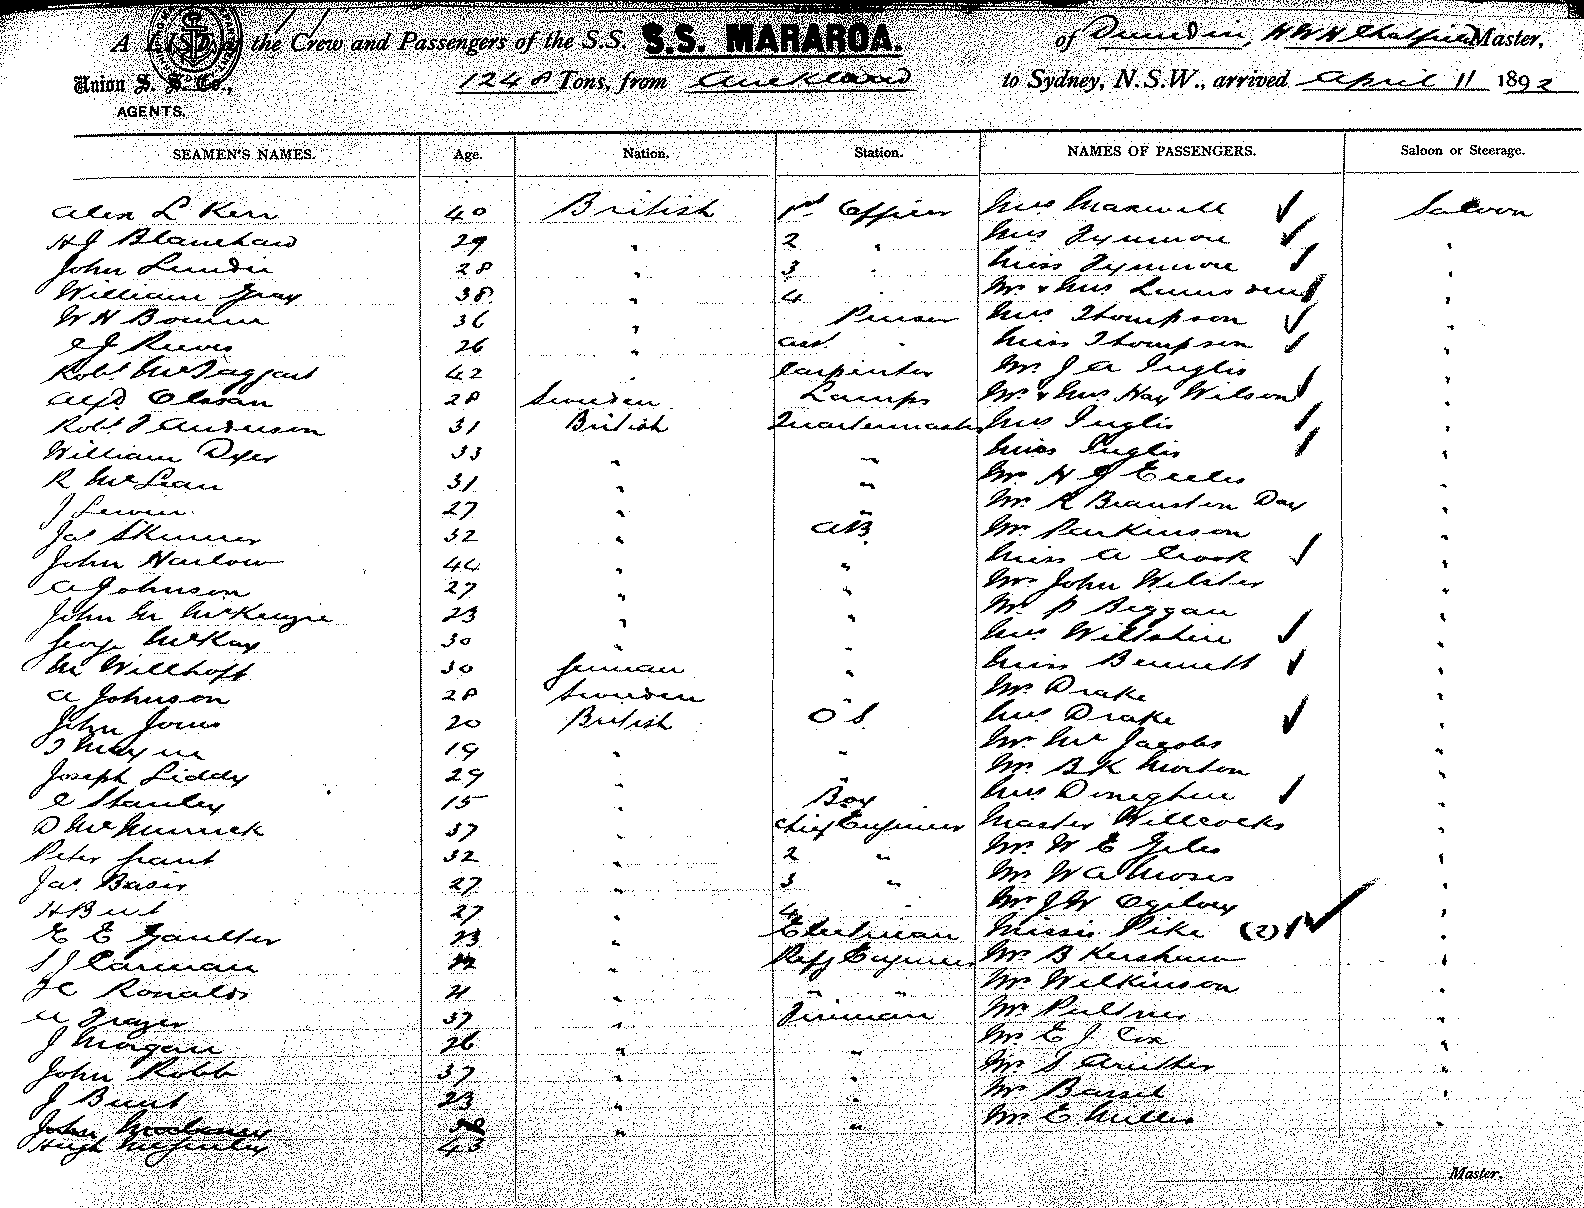 A LIST of the Crew and Passengers of the S.S. S.S. MARAROA. of Dunedin, H W H Chatfield Master,
Union S. S. Co., 1248 Tons, from Auckland to Sydney, N.S.W., arrived April 11 1892
AGENTS.
SEAMEN'S NAMES. Age. Nation. Station. NAMES OF PASSENGERS. Saloon or Steerage.
Alex L Kerr 40 British 1st Officer Mrs Maxwell Saloon
H J Blanchard 29 " 2 " Mrs Fynmore "
John Lundie 28 " 3 " Miss Fynmore "
William Gray 38 " 4 " Mr & Mrs "
W H Bourne 36 " Purser Mrs Thompson "
J Reeves 26 " asst " Miss Thompson "
Robt McTaggart 42 Carpenter Mr J A Inglis "
Alfd Olsson 28 Sweden Lamps Mr & Mrs Hay Wilson "
Robt J Anderson 31 British Quartermaster Mrs Inglis "
William Dyer 33 " " Miss Inglis "
R McLean 31 " " Mr H J Eccles "
J Lewin 27 " " Mr R Braunston Day "
Jas Skinner 32 " AB Mr Parkinson "
John Harlow 44 " " Miss A Crook "
A Johnson 27 " " Mr John Wilster "
John M McKenzie 23 " " Mr P Beggau "
George McKay 30 " " Mrs Wiltshire "
M Willhoft 30 German " Miss Bennett "
A Johnson 28 Sweden " Mr Drake "
John Jones 20 British O S Mrs Drake "
19 " " Mr Mc Jacobs "
Joseph Liddy 29 " " Mr B K Morton "
E Stanley 15 " Boy Mrs Doneghue "
D McMurrick 37 " Chief Engineer Master Willcocks "
Peter Grant 32 " 2 " Mr W E Giles "
Jas Basir 27 " 3 " Mr W A Moses "
H Bert 27 " 4 " Mr J W Ogilvey "
E E Gaulter 23 " Electrman Misses Pike (2) "
S J Carman " Refg Engineer Mr B Kershaw "
J C Ronalds 21 " " " Mr Wilkinson "
Frazer 37 " Fireman Mr Pultney "
J Morgan 26 " " Mr E J Cox "
John Robb 37 " " Mr S "
J Bunt 23 " " Mr Bassil "
John " " Mr E Miller "
Hugh McGinley 43
Master.